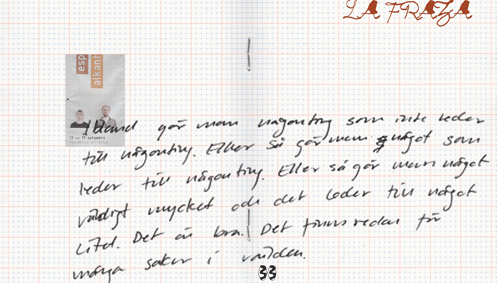 LA FRAZA
esp
alkant
Ibland gör man någonting som inte leder
till någonting. Eller så gör man något som
leder till någonting. Eller så gör man något
väldigt mycket och det leder till något
litet. Det är bra. Det finns redan för
många saker i världen.
33